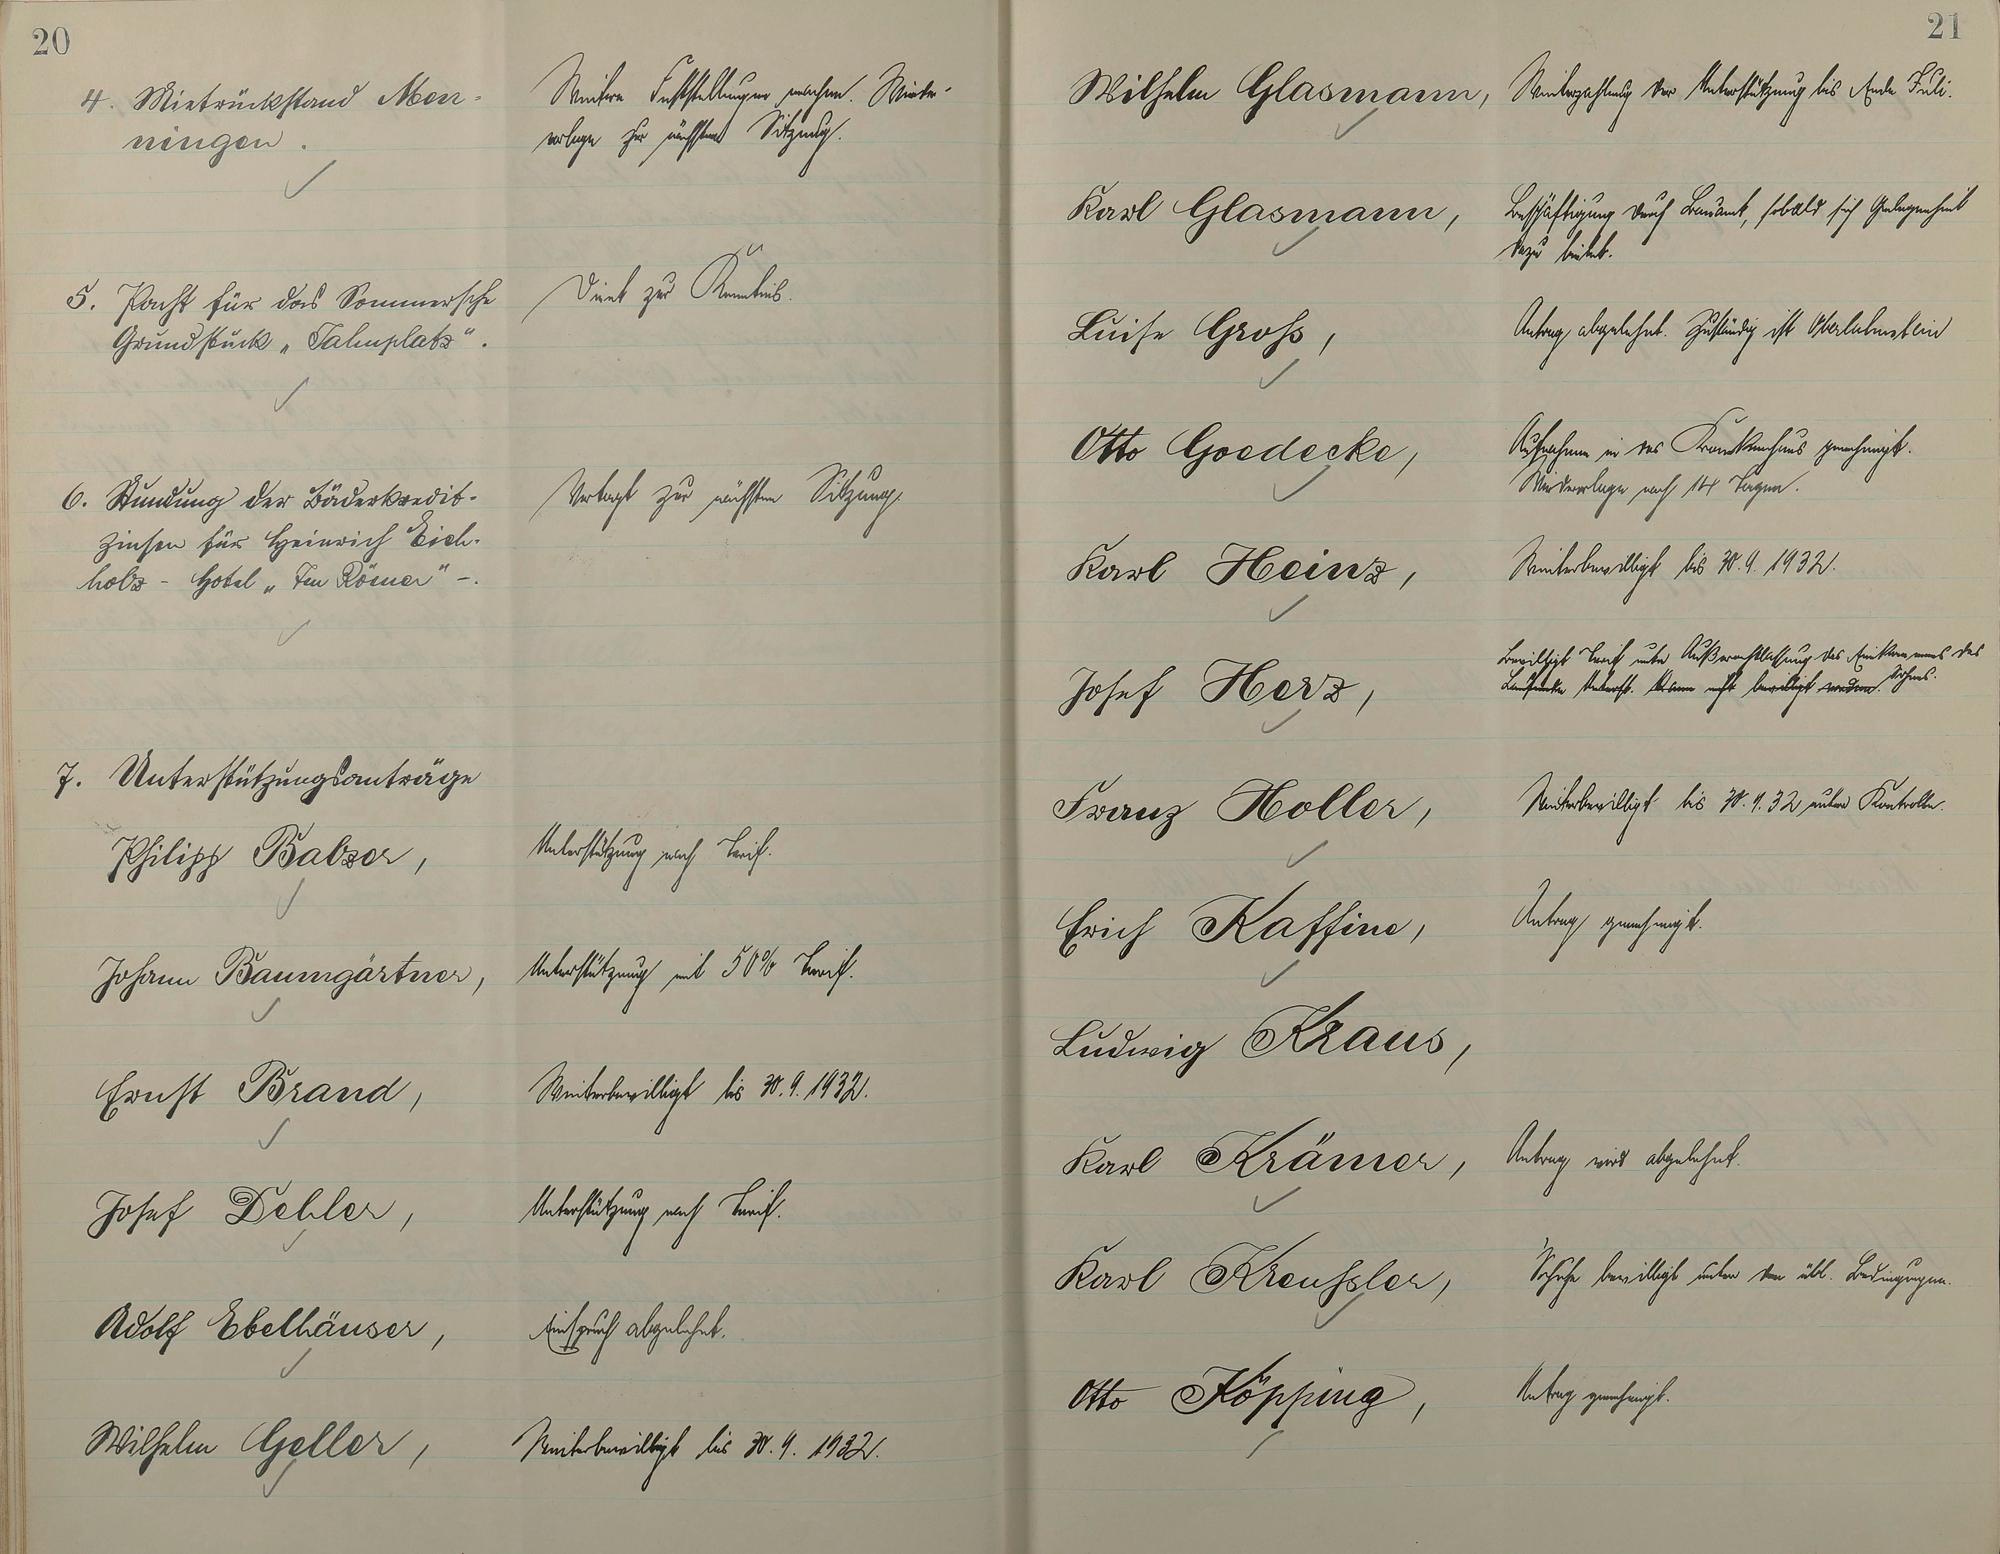 20
4. Mietrückstand Men-
ningen.
Weitere Feststellungen machen. Wieder-
vorlage zur nächsten Sitzung.
5. Pacht für das Sommersche
Grundstück „Jahnplatz“.
Dient zur Kenntnis.
6. Stundung der Bäderkredit-
zinsen für Heinrich Eich-
holz - Hotel „Im Römer“ -.
Vertagt zur nächsten Sitzung.
7. Unterstützungsanträge
Philipp Balzer,
Unterstützung nach Tarif.
Johann Baumgärtner,
Unterstützung mit 50% Tarif.
Ernst Brand,
Weiterbewilligt bis 30.9.1932.
Josef Dehler,
Unterstützung nach Tarif.
Adolf Ebelhäuser,
Einspruch abgelehnt.
Wilhelm Geller,
Weiterbewilligt bis 30.9.1932.
21
Wilhelm Glasmann,
Weiterzahlung der Unterstützung bis Ende Juli.
Karl Glasmann,
Beschäftigung durch Bauamt, sobald sich Gelegenheit
dazu bietet.
Luise Groß,
Antrag abgelehnt. Zuständig ist Oberlahnstein
Otto Goedecke,
Aufnahme in das Krankenhaus genehmigt.
Wiedervorlage nach 14 Tagen.
Karl Heinz,
Weiterbewilligt bis 30.9.1932.
Josef Herz,
Bewilligt Tarif unter Außerachtlassung des Einkommens des
Unterst. kann nicht bewilligt werden. Sohnes.
Franz Holler,
Weiterbewilligt bis 30.9.32 unter Kontrolle.
Erich Kaffine,
Antrag genehmigt.
Ludwig Kraus,
Karl Krämer,
Antrag wird abgelehnt.
Karl Kreußler,
Schuhe bewilligt unter den übl. Bedingungen.
Otto Köpping,
Antrag genehmigt.